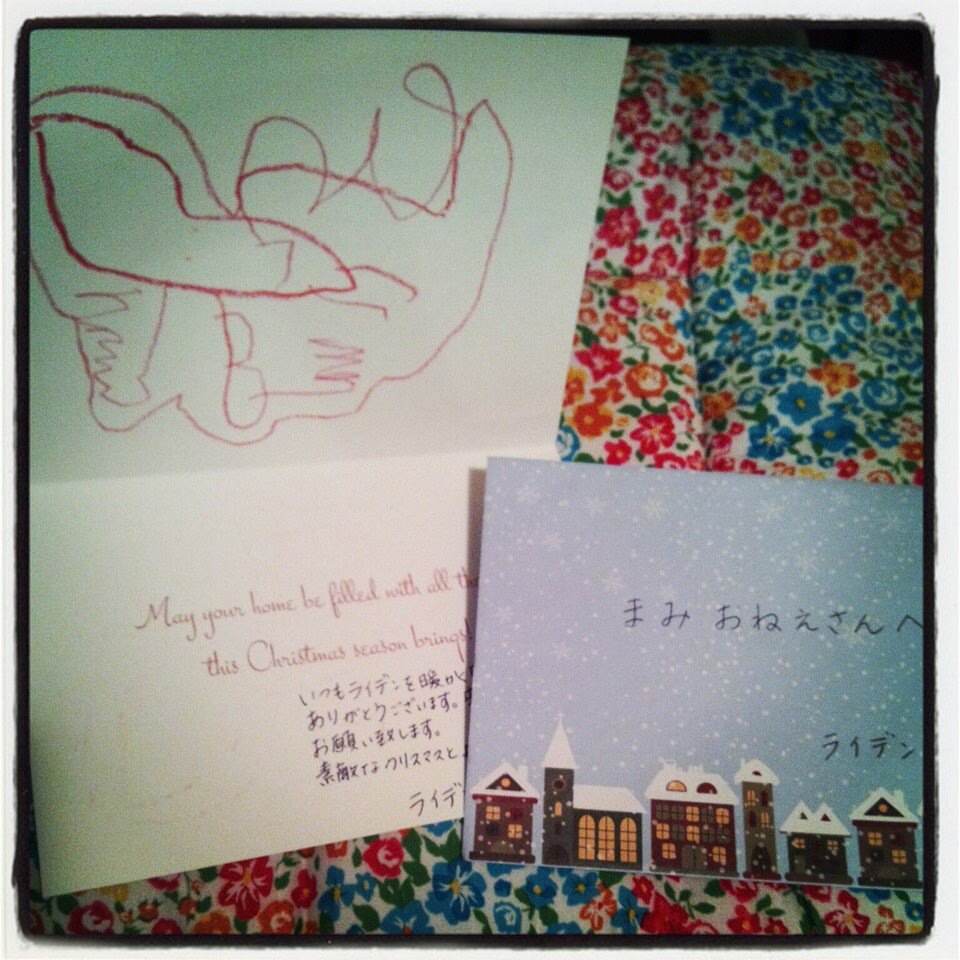 May your home be filled with all the
this Christmas season brings!
いつもライデンを暖かく
ありがとうございます。
お願い致します。
素敵なクリスマスと
ライデ
まみ おねえさんへ
ライデン